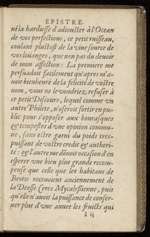 EPISTRE.
ni la hardiesse d'adiouster à l'Ocean
de vos perfections, ce petit ruisseau,
coulant plustost de la vine source de
vos louanges, que non pas du deuoir
de mon affection: La premiere me
persuadant facilement qu'apres m'a-
uoir honteux de la felicité de vostre
nom, vous ne voudriez, refuser à
ce petit Discours, lequel comme un
autre Phœnix, n'oseroit sortir en pu-
blic pour s'opposer aux bourrasques
& tempestes d'une opinion commu-
ne, sans estre garni du poids trez-
puissant de vostre credit & authori-
té: & l'autre me donne occasion d'en
esperer une bien plus grande recom-
pense que celle que les habitans de
receuoient anciennement de
la Deesse Ceres Mycalessienne, puis
qu'elle n'auoit la puissance de conser-
uer plus d'une annee les fruicts qui